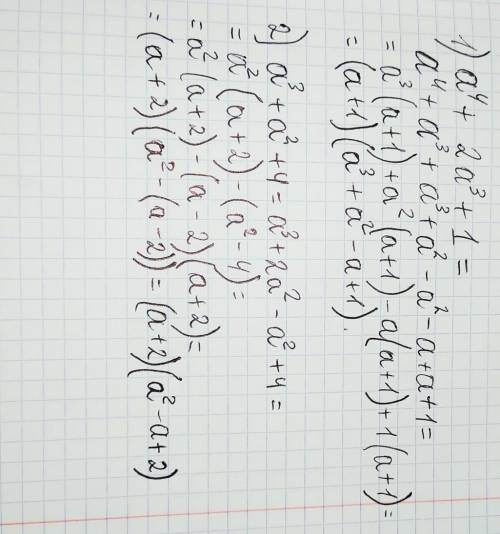 1) a⁴ + 2a³ + 1 =
a⁴ + a³ + a³ + a² - a² - a + a + 1 =
= a³(a+1) + a²(a+1) - a(a+1) + 1(a+1) =
= (a+1)(a³ + a² - a + 1).
2) a³ + a³ + 4 = a³ + 2a² - a² + 4 =
= a²(a+2) - (a² - 4) =
= a²(a+2) - (a-2)(a+2) =
= (a+2)(a² - (a-2)) = (a+2)(a² - a + 2)